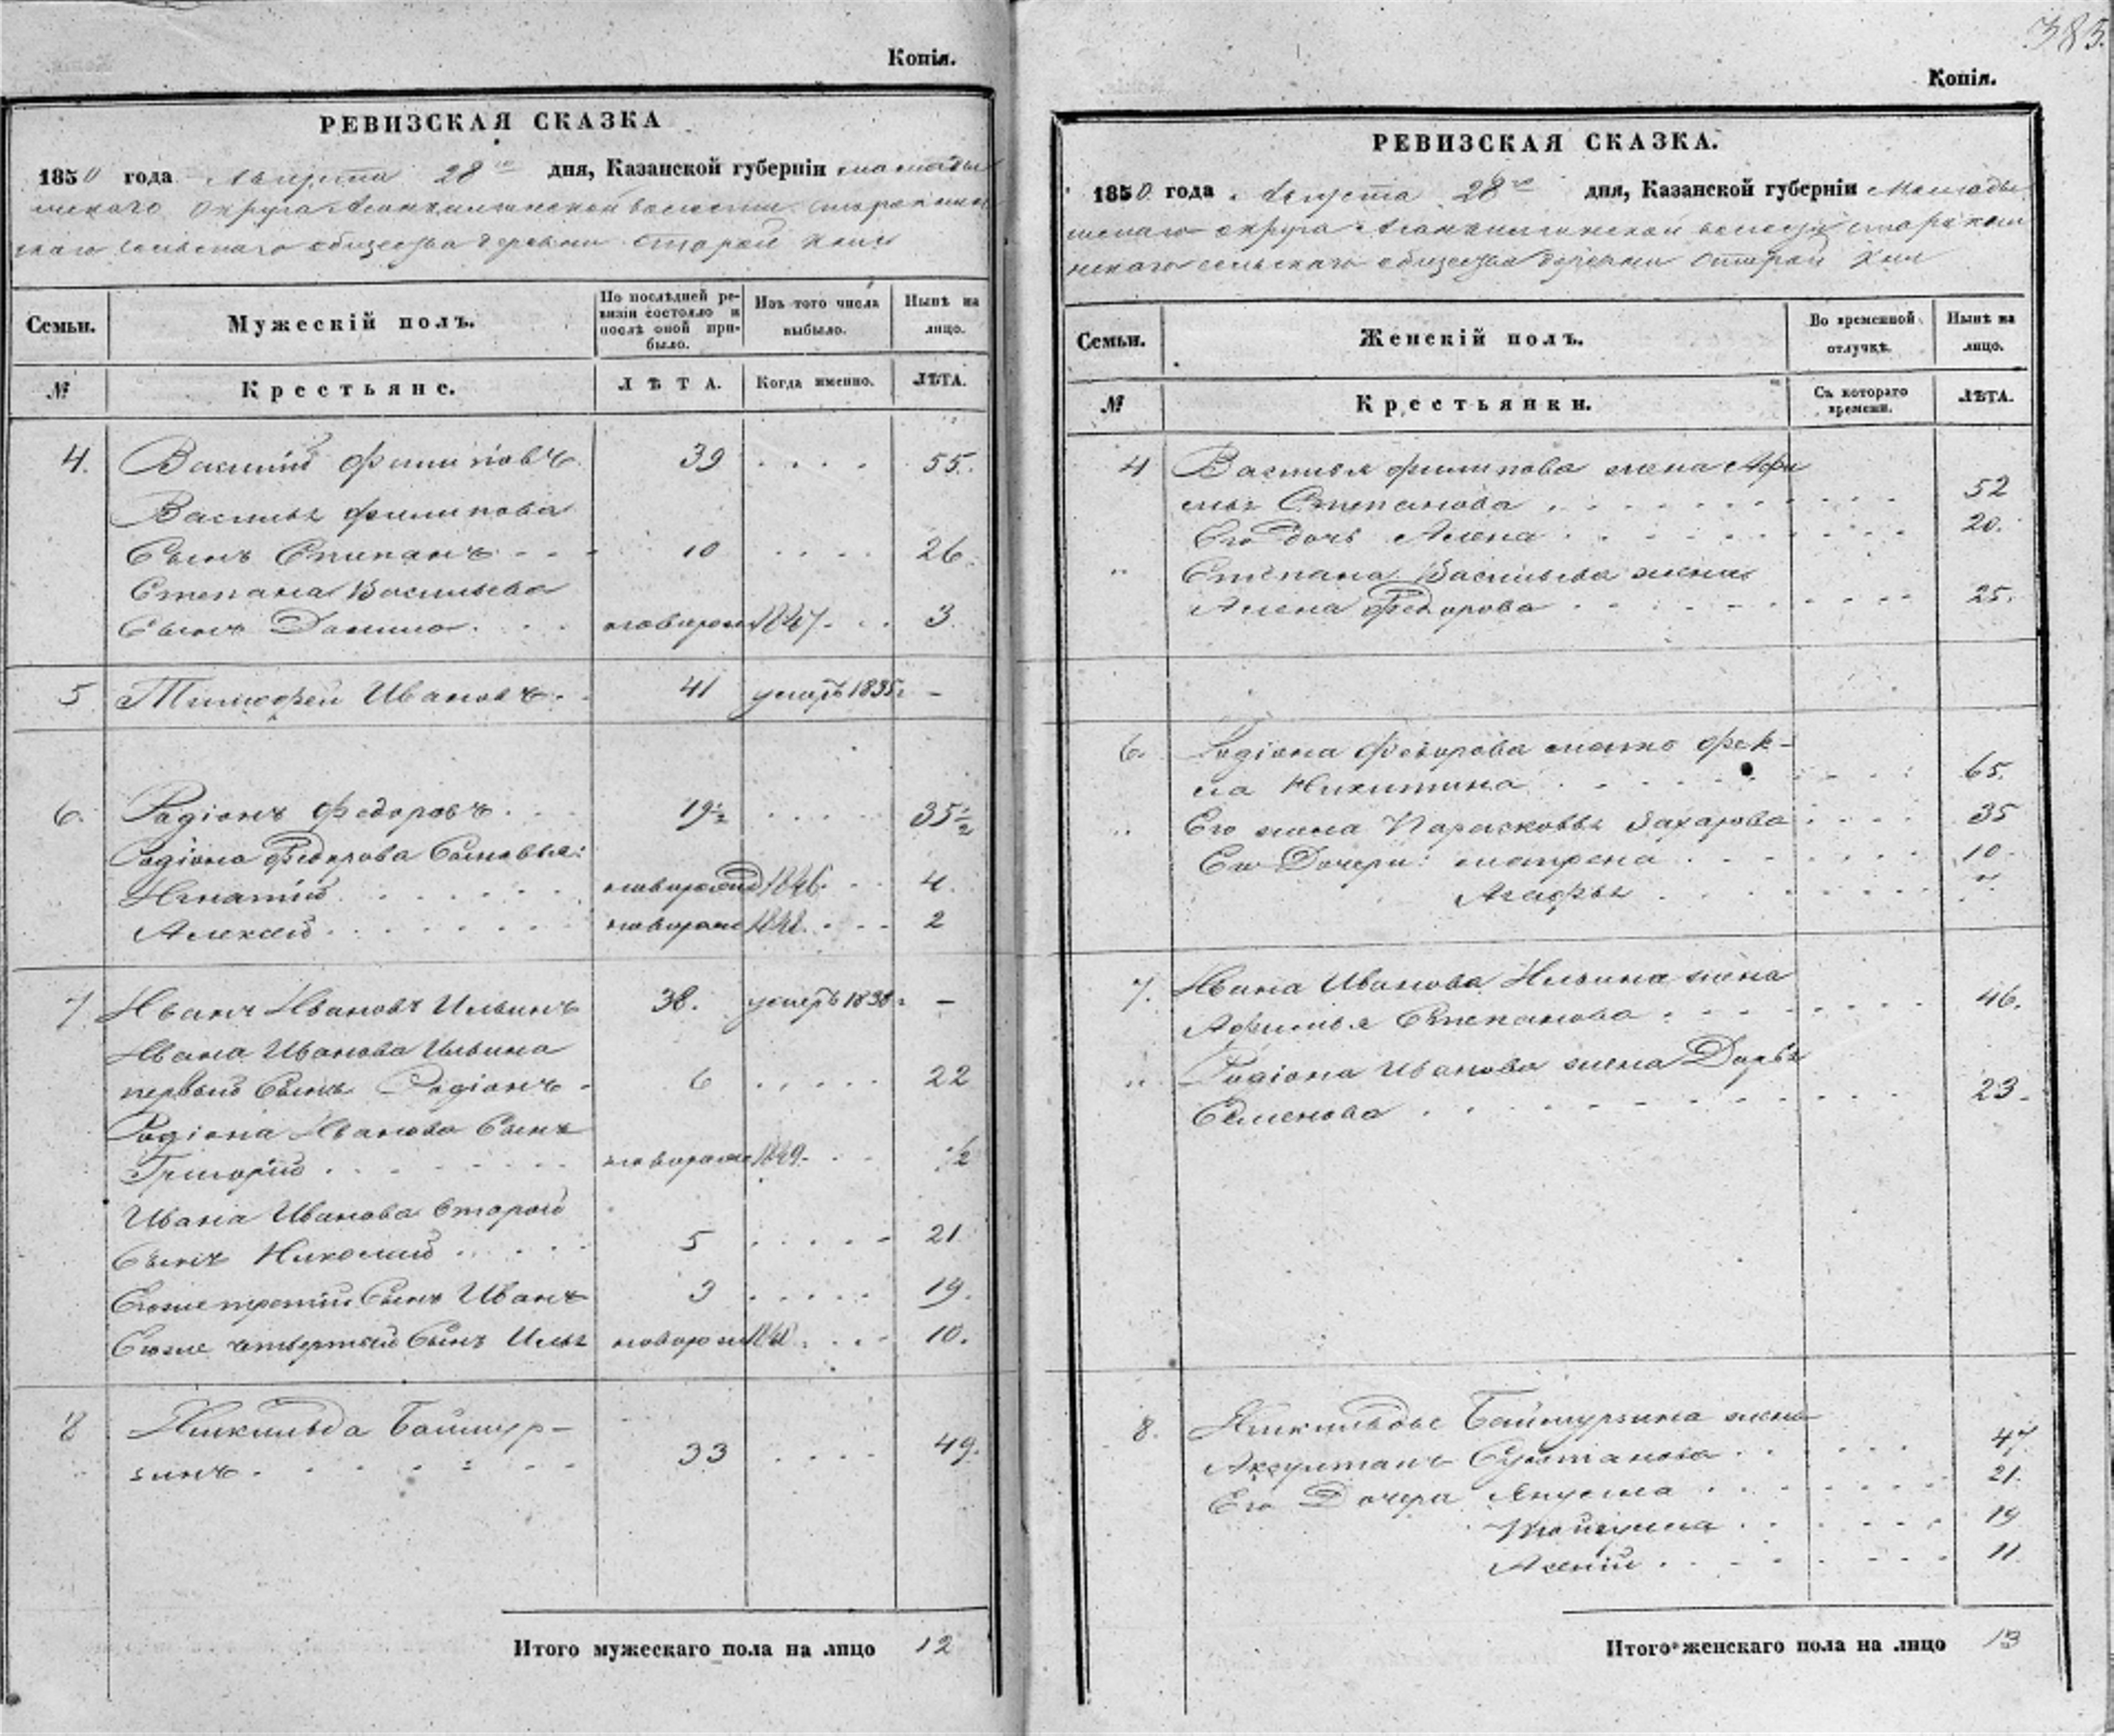 Копія.
РЕВИЗСКАЯ СКАЗКА
1850 года Августа 28го дня, Казанской губерніи мамады
шскаго округа волости
скаго сельскаго общества деревни Старой
Семьи.
Мужескій полъ.
По послѣдней ре-
визіи состояло и
послѣ оной при-
было.
Изъ того числа
выбыло.
Нынѣ на
лицо.
№
Крестьяне.
ЛѢТА.
Когда именно.
ЛѢТА.
4. Василій Филиповъ 39 . . . . 55.
Василья Филипова
Сынъ Степанъ - - - 10 . . . . 26.
Степана Васильева
Сынъ Данило . . . новорож 1847. . . 3.
5 Тимофей Ивановъ . . 41 умеръ 1835г –
6. Родіонъ Федоровъ . . . 19½ . . . . . 35½
Родіона Федорова Сыновья:
Игнатій . . . . . . новорожд 1846. . . 4.
Алексей . . . . . . . новорож 1848. . . . 2
7. Иванъ Ивановъ Ильинъ 38. умеръ 1838г –
Ивана Иванова Ильина
первый Сынъ Родіонъ - 6 . . . . . 22
Родіона Иванова Сынъ
Григорій . . . . . . . новорож 1849. . . ½
Ивана Иванова второй
Сынъ Николай . . . . 5 . . . . . 21
Егоже третій Сынъ Иванъ 3 . . . . . 19.
Егоже четвертый Сынъ Илья новорож . . . 10.
8 Янкильда Баймур-
зинъ . . . . . . . 33 . . . . 49.
Итого мужескаго пола на лицо 12
383.
Копія.
РЕВИЗСКАЯ СКАЗКА.
1850 года Августа 28го дня, Казанской губерніи Мамады
шскаго округа волости
скаго сельскаго общества деревни Старой
Семьи.
Женскій полъ.
Во временной
отлучкѣ.
Нынѣ на
лицо.
№
Крестьянки.
Съ котораго
времени.
ЛѢТА.
4 Василья Филипова жена Афи
мья Степанова . . . . . . . . . 52
Его дочь Алена . . . . . . . . . 20.
" Степана Васильева жена
Алена Федорова . . . . . . . . . 25.
6. Родіона Федорова мать Фек-
ла Никитина . . . . . . . . . 65.
" Его жена Парасковья Захарова . . . . 35
Его Дочери: матрена . . . . . . . . 10.
Агафья . . . . . . . .
7. Ивана Иванова Ильина жена
Афимья Степанова . . . . . . . . . 46.
" Родіона Иванова жена Дарья
Семенова . . . . . . . . . . . 23.
8. Янкильды Баймурзина жена
Султанова . . . . . . 47
Его Дочери . . . . . . . 21.
. . . . . . 19
. . . . . . . 11.
Итого женскаго пола на лицо 13